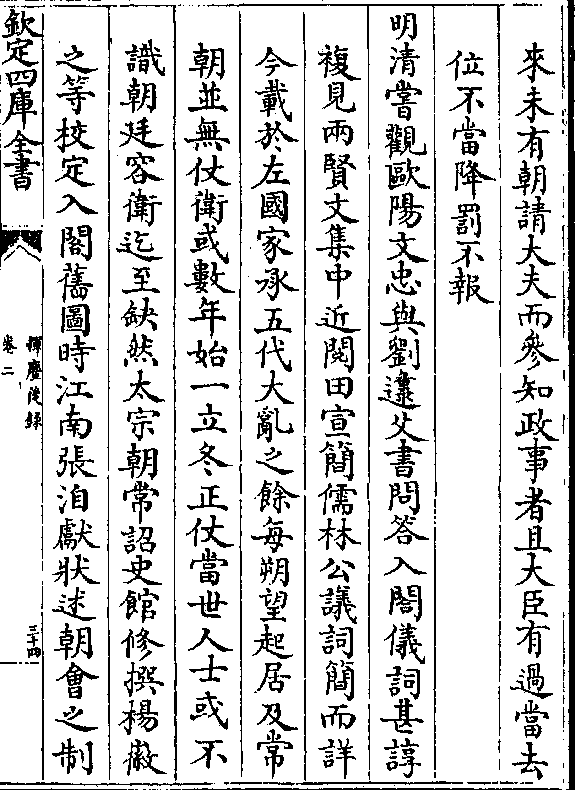 來未有朝請大夫而參知政事者且大臣有過當去
位不當降罰不報
明清嘗觀歐陽文忠與劉邍父書問答入閤儀詞甚諄
複見兩賢文集中近閱田宣簡儒林公議詞簡而詳
今載於左國家承五代大亂之餘每朔望起居及常
朝並無仗衛或數年始一立冬正仗當世人士或不
識朝廷容衛迄至缺然太宗朝常詔史館修撰楊徽
之等校定入閣舊圖時江南張洎獻狀述朝會之制
欽定四庫全書
揮麈後錄
卷二
三十四